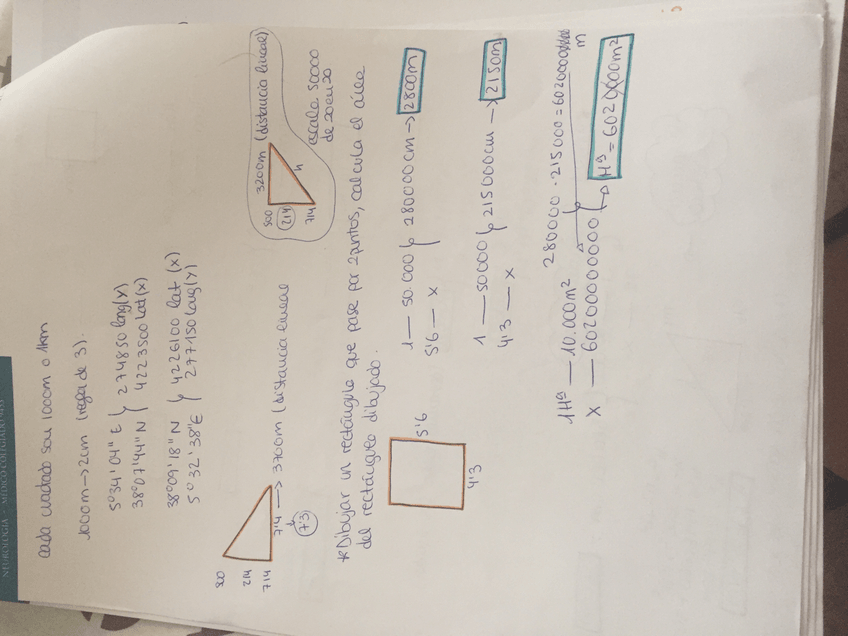 NEUROLOGÍA - MÉDICO COLEGIADO Nº
cada cuadrado son 1000m o 1km
1000m → 2cm (regla de 3).
5º34'04" E } 274850 long(Y)
38º07'44" N } 4223500 lat(X)
38º09'18" N } 4226100 lat (X)
5º32'38"E } 277150 long(Y)
500
214
714
7'4 → 3700m (distancia lineal
7'3
500
214
714
3200m (distancia lineal)
h
escala 50000
*Dibujar un rectángulo que pase por 2 puntos, calcula el área
del rectángulo dibujado.
5'6
4'3
1 — 50.000 } 280000cm → 2800m
5'6 — x
1 — 50000 } 215000cm → 2150m
4'3 — x
280000 · 215000 = 6020000
m
1Hª — 10.000m²
X — 60200000000
Hª = 602